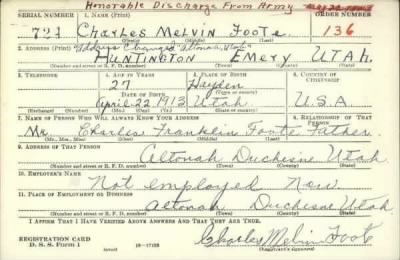 Honorable Discharge From Army
SERIAL NUMBER 1. NAME (Print) ORDER NUMBER
721 Charles Melvin Foote 136
(First) (Middle) (Last)
2. ADDRESS (Print) "Address Changed" "Altonah, Utah"
HUNTINGTON Emery UTAH.
3. TELEPHONE 4. AGE IN YEARS 5. PLACE OF BIRTH 6. COUNTRY OF CITIZENSHIP
27 Hayden
DATE OF BIRTH (Town or county)
April 22 1913 Utah U.S.A.
(Exchange) (Number) (Mo.) (Day) (Yr.) (State or country)
7. NAME OF PERSON WHO WILL ALWAYS KNOW YOUR ADDRESS 8. RELATIONSHIP OF THAT PERSON
Mr. Charles Franklin Foote Father
(Mr., Mrs., Miss) (First) (Middle) (Last)
9. ADDRESS OF THAT PERSON
Altonah Duchesne Utah
(Number and street or R. F. D. number) (Town) (County) (State)
10. EMPLOYER'S NAME
Not employed Now
11. PLACE OF EMPLOYMENT OR BUSINESS
Altonah Duchesne Utah
(Number and street or R. F. D. number) (Town) (County) (State)
I AFFIRM THAT I HAVE VERIFIED ABOVE ANSWERS AND THAT THEY ARE TRUE.
REGISTRATION CARD
D. S. S. Form 1 16-17105 Charles Melvin Foote